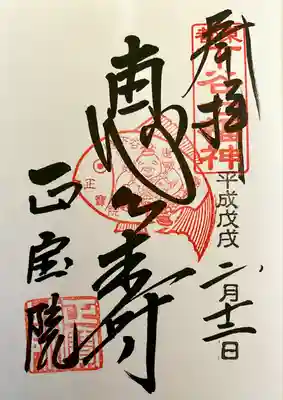 奉拝
平成戊戌
二月十二日
恵比寿
正宝院
正寶院